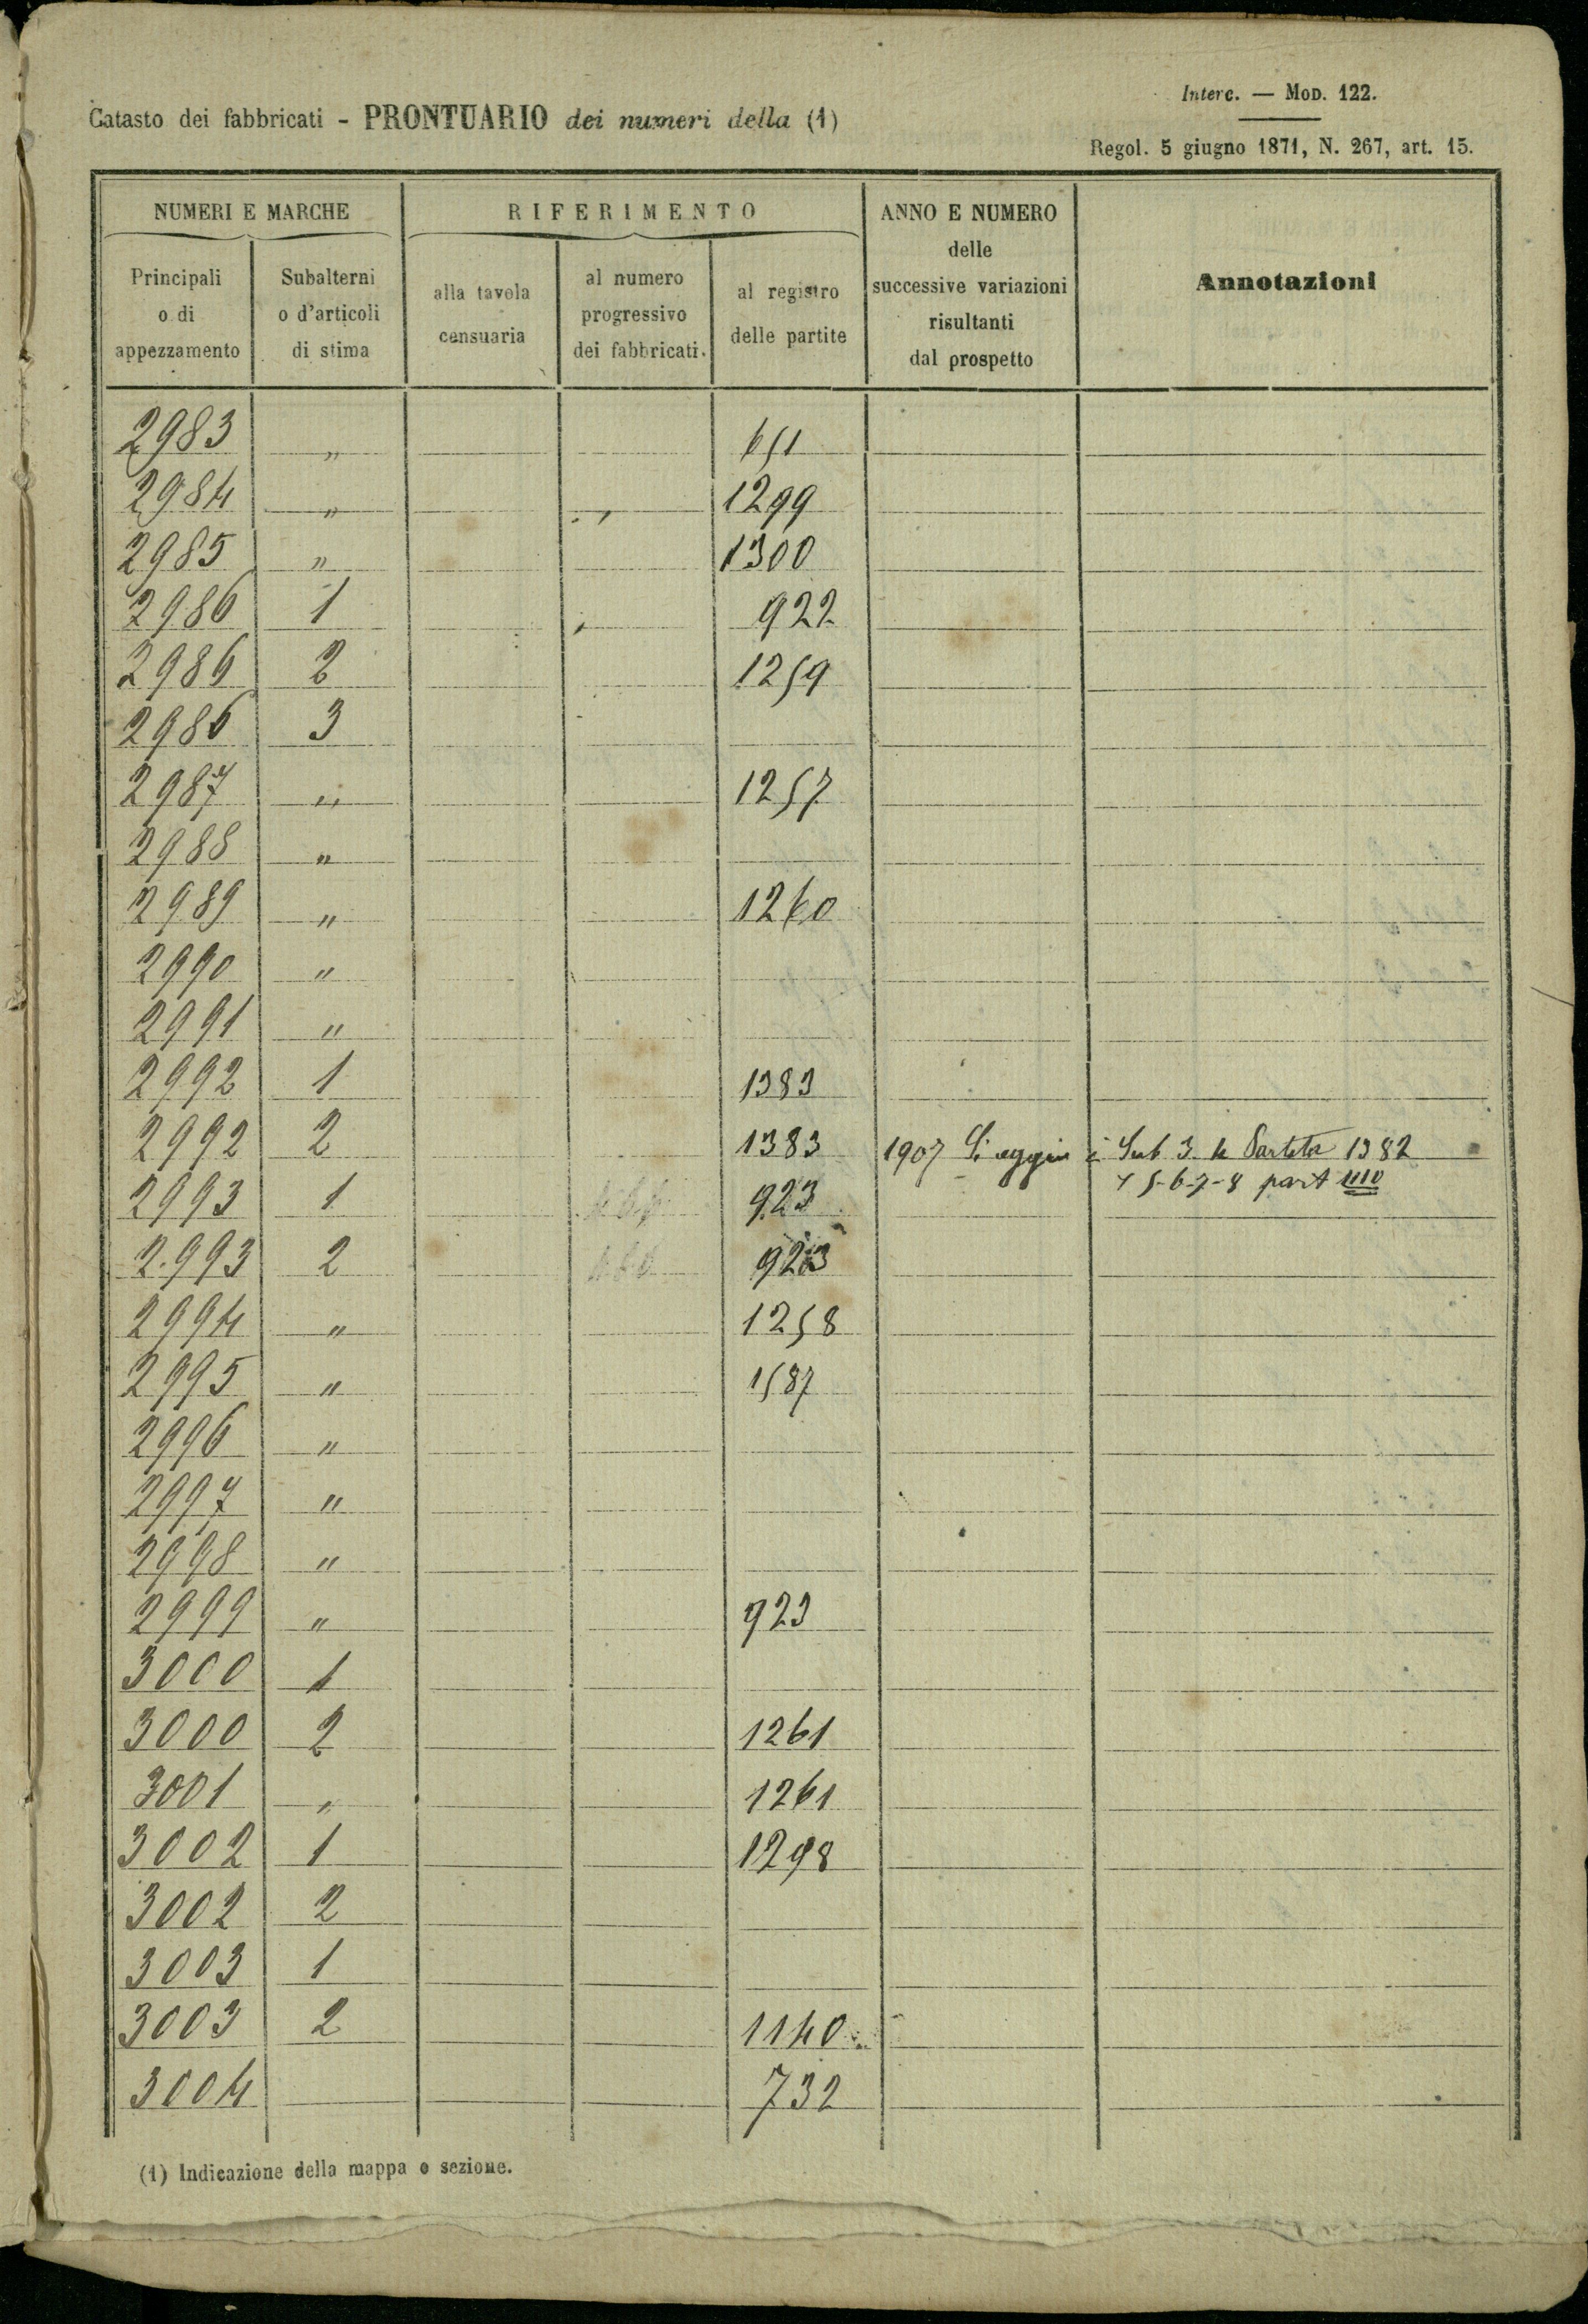 Interc. — Mod. 122.
Catasto dei fabbricati - PRONTUARIO dei numeri della (1)
Regol. 5 giugno 1871, N. 267, art. 15.
NUMERI E MARCHE RIFERIMENTO ANNO E NUMERO delle successive variazioni risultanti dal prospetto Annotazioni
Principali o di appezzamento Subalterni o d'articoli di stima alla tavola censuaria al numero progressivo dei fabbricati. al registro delle partite
2983 " 651
2984 " 1299
2985 " 1300
2986 1 922
2986 2 1259
2986 3
2987 " 1257
2988 "
2989 " 1260
2990 "
2991 "
2992 1 1383
2992 2 1383 1907 Si Sub 3. 4 Partita 1382
5-6-7-8 part 1110
2993 1 923
2993 2 923
2994 " 1258
2995 " 1587
2996 "
2997 "
2998 "
2999 " 923
3000 1
3000 2 1261
3001 " 1261
3002 1 1298
3002 2
3003 1
3003 2 1140
3004 732
(1) Indicazione della mappa o sezione.